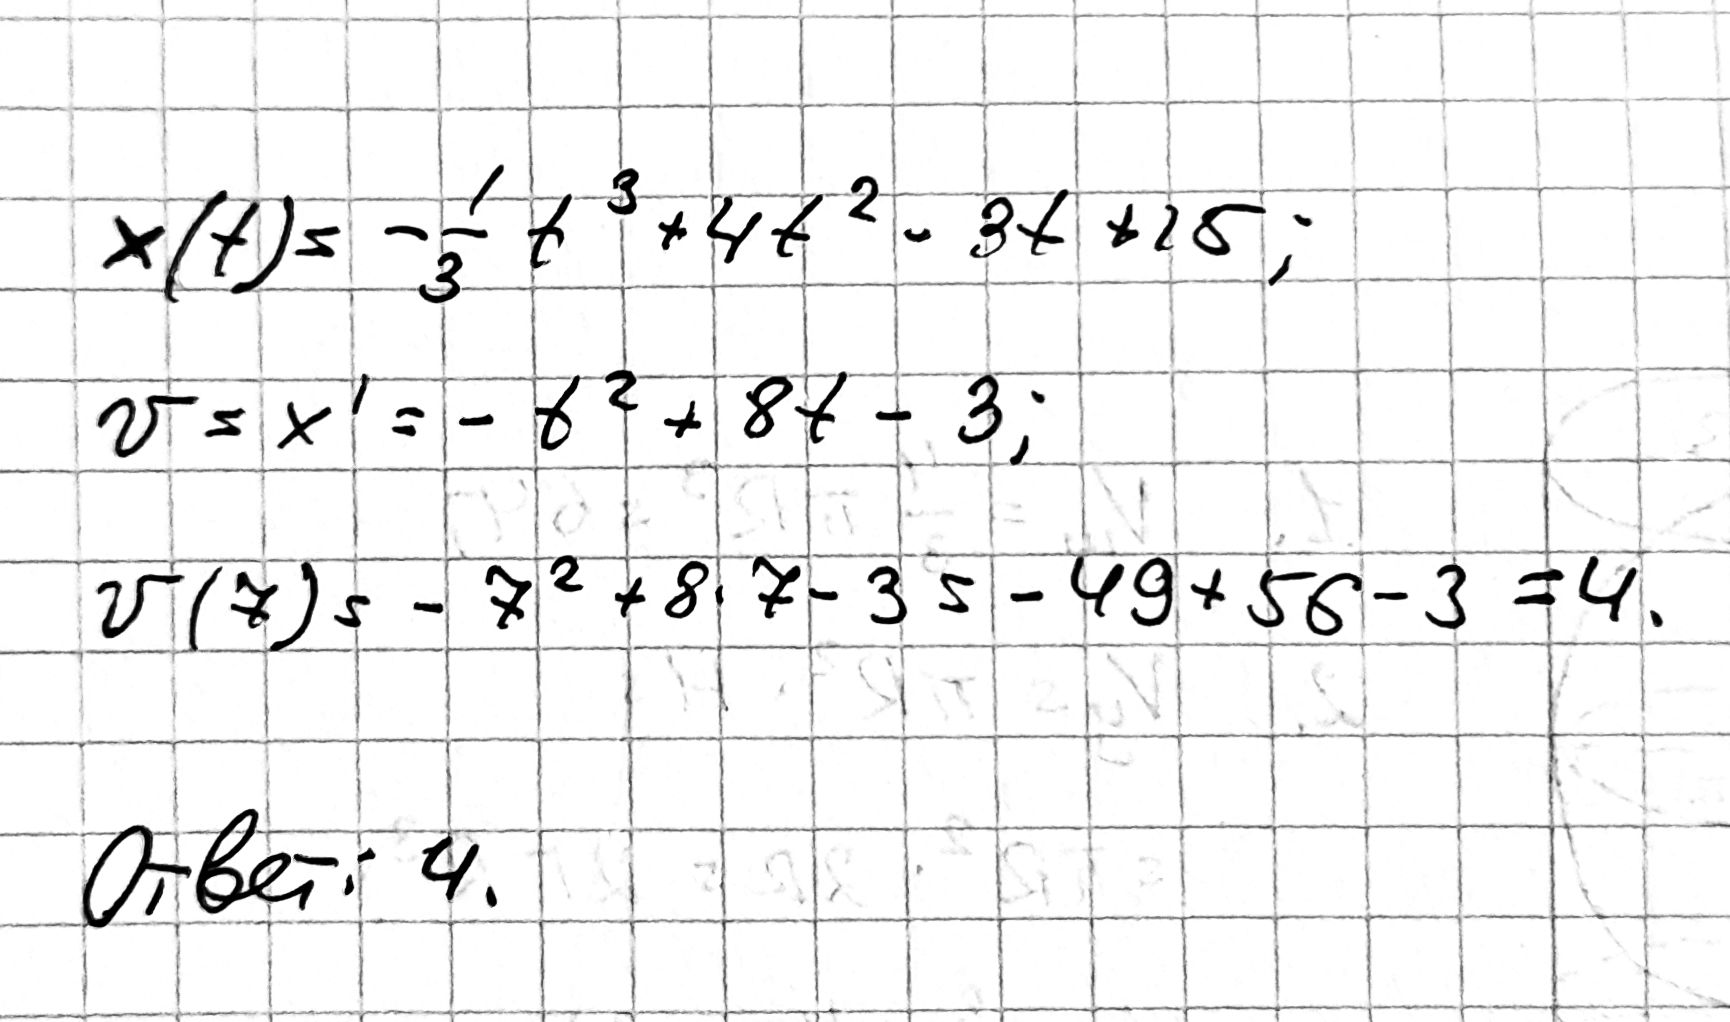 x(t) = -1/3 t³ + 4t² - 3t + 15;
v = x' = - t² + 8t - 3;
v(7) = - 7² + 8·7 - 3 = - 49 + 56 - 3 = 4.
Ответ: 4.